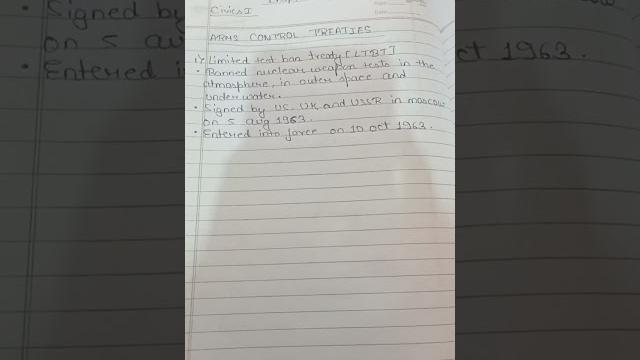 Civics I
ARMS CONTROL TREATIES
1) Limited test ban treaty [LTBT]
• Banned nuclear weapon tests in the
atmosphere, in outer space and
underwater.
• Signed by US, UK, and USSR in moscow
on 5 aug 1963.
• Entered into force on 10 oct 1963.
• Signed by
on 5 aug
• Entered i
ct 1963.